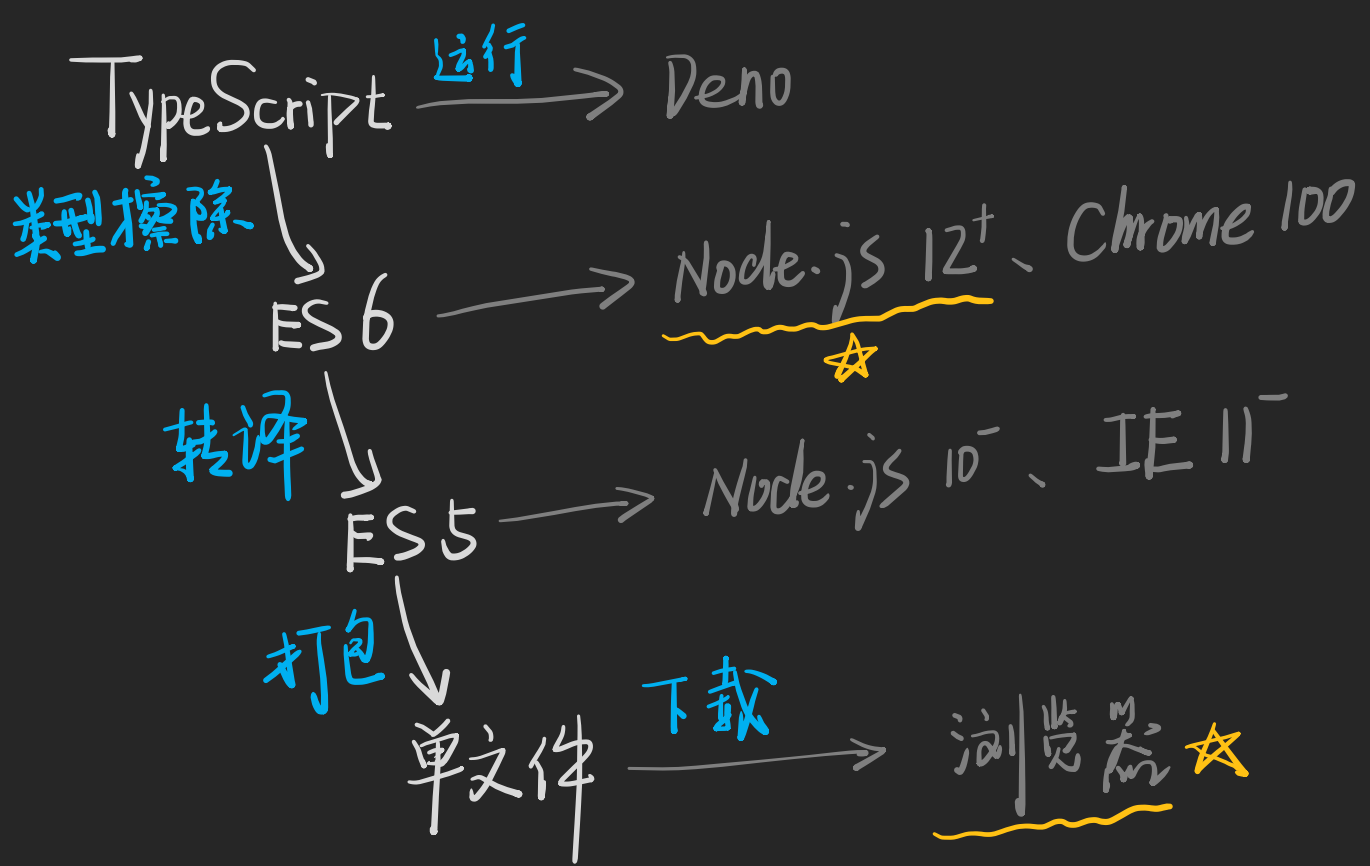 TypeScript 运行 Deno
类型擦除
ES6 Node.js 12+、Chrome 100
转译
ES5 Node.js 10-、IE 11-
打包
单文件 下载 浏览器